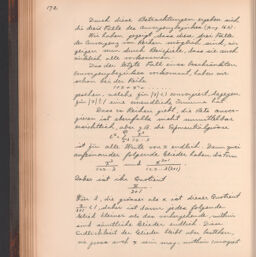 172
Durch diese Betrachtungen ergeben sich
die drei Fälle des Convergenzgebietes (Aug.
Wir haben gezeigt, dass diese drei Fälle
der Convergenz von Reihen möglich sind, wir
zeigen nun durch Beispiele, dass sie auch
wirklich alle vorkommen.
Dass der letzte Fall eines beschränkten
Convergenzgebietes vorkommt, haben wir
schon bei der Reihe
1+x+x²+...
gesehen, welche für |x|<1 convergiert, dagegen
für |x|>1 eine unendliche Summe hat.
Dass es Reihen giebt, die stets conver-
gieren ist ebenfalls nicht unmittelbar
ersichtlich, aber z.B. die Exponentialgrösse
ist für alle Werte von x endlich. Denn zwei
aufeinander folgende Glieder haben die Form
Daher ist ihr Quotient
Für λ, die grösser als x ist dieser Quotient
<1, daher ist dann jedes folgende
Glied kleiner als das vorhergehende, mithin
sind sämtliche Glieder endlich. Diese
Endlichkeit der Glieder bleibt aber bestehen,
wie gross auch x sein mag, mithin convergiert